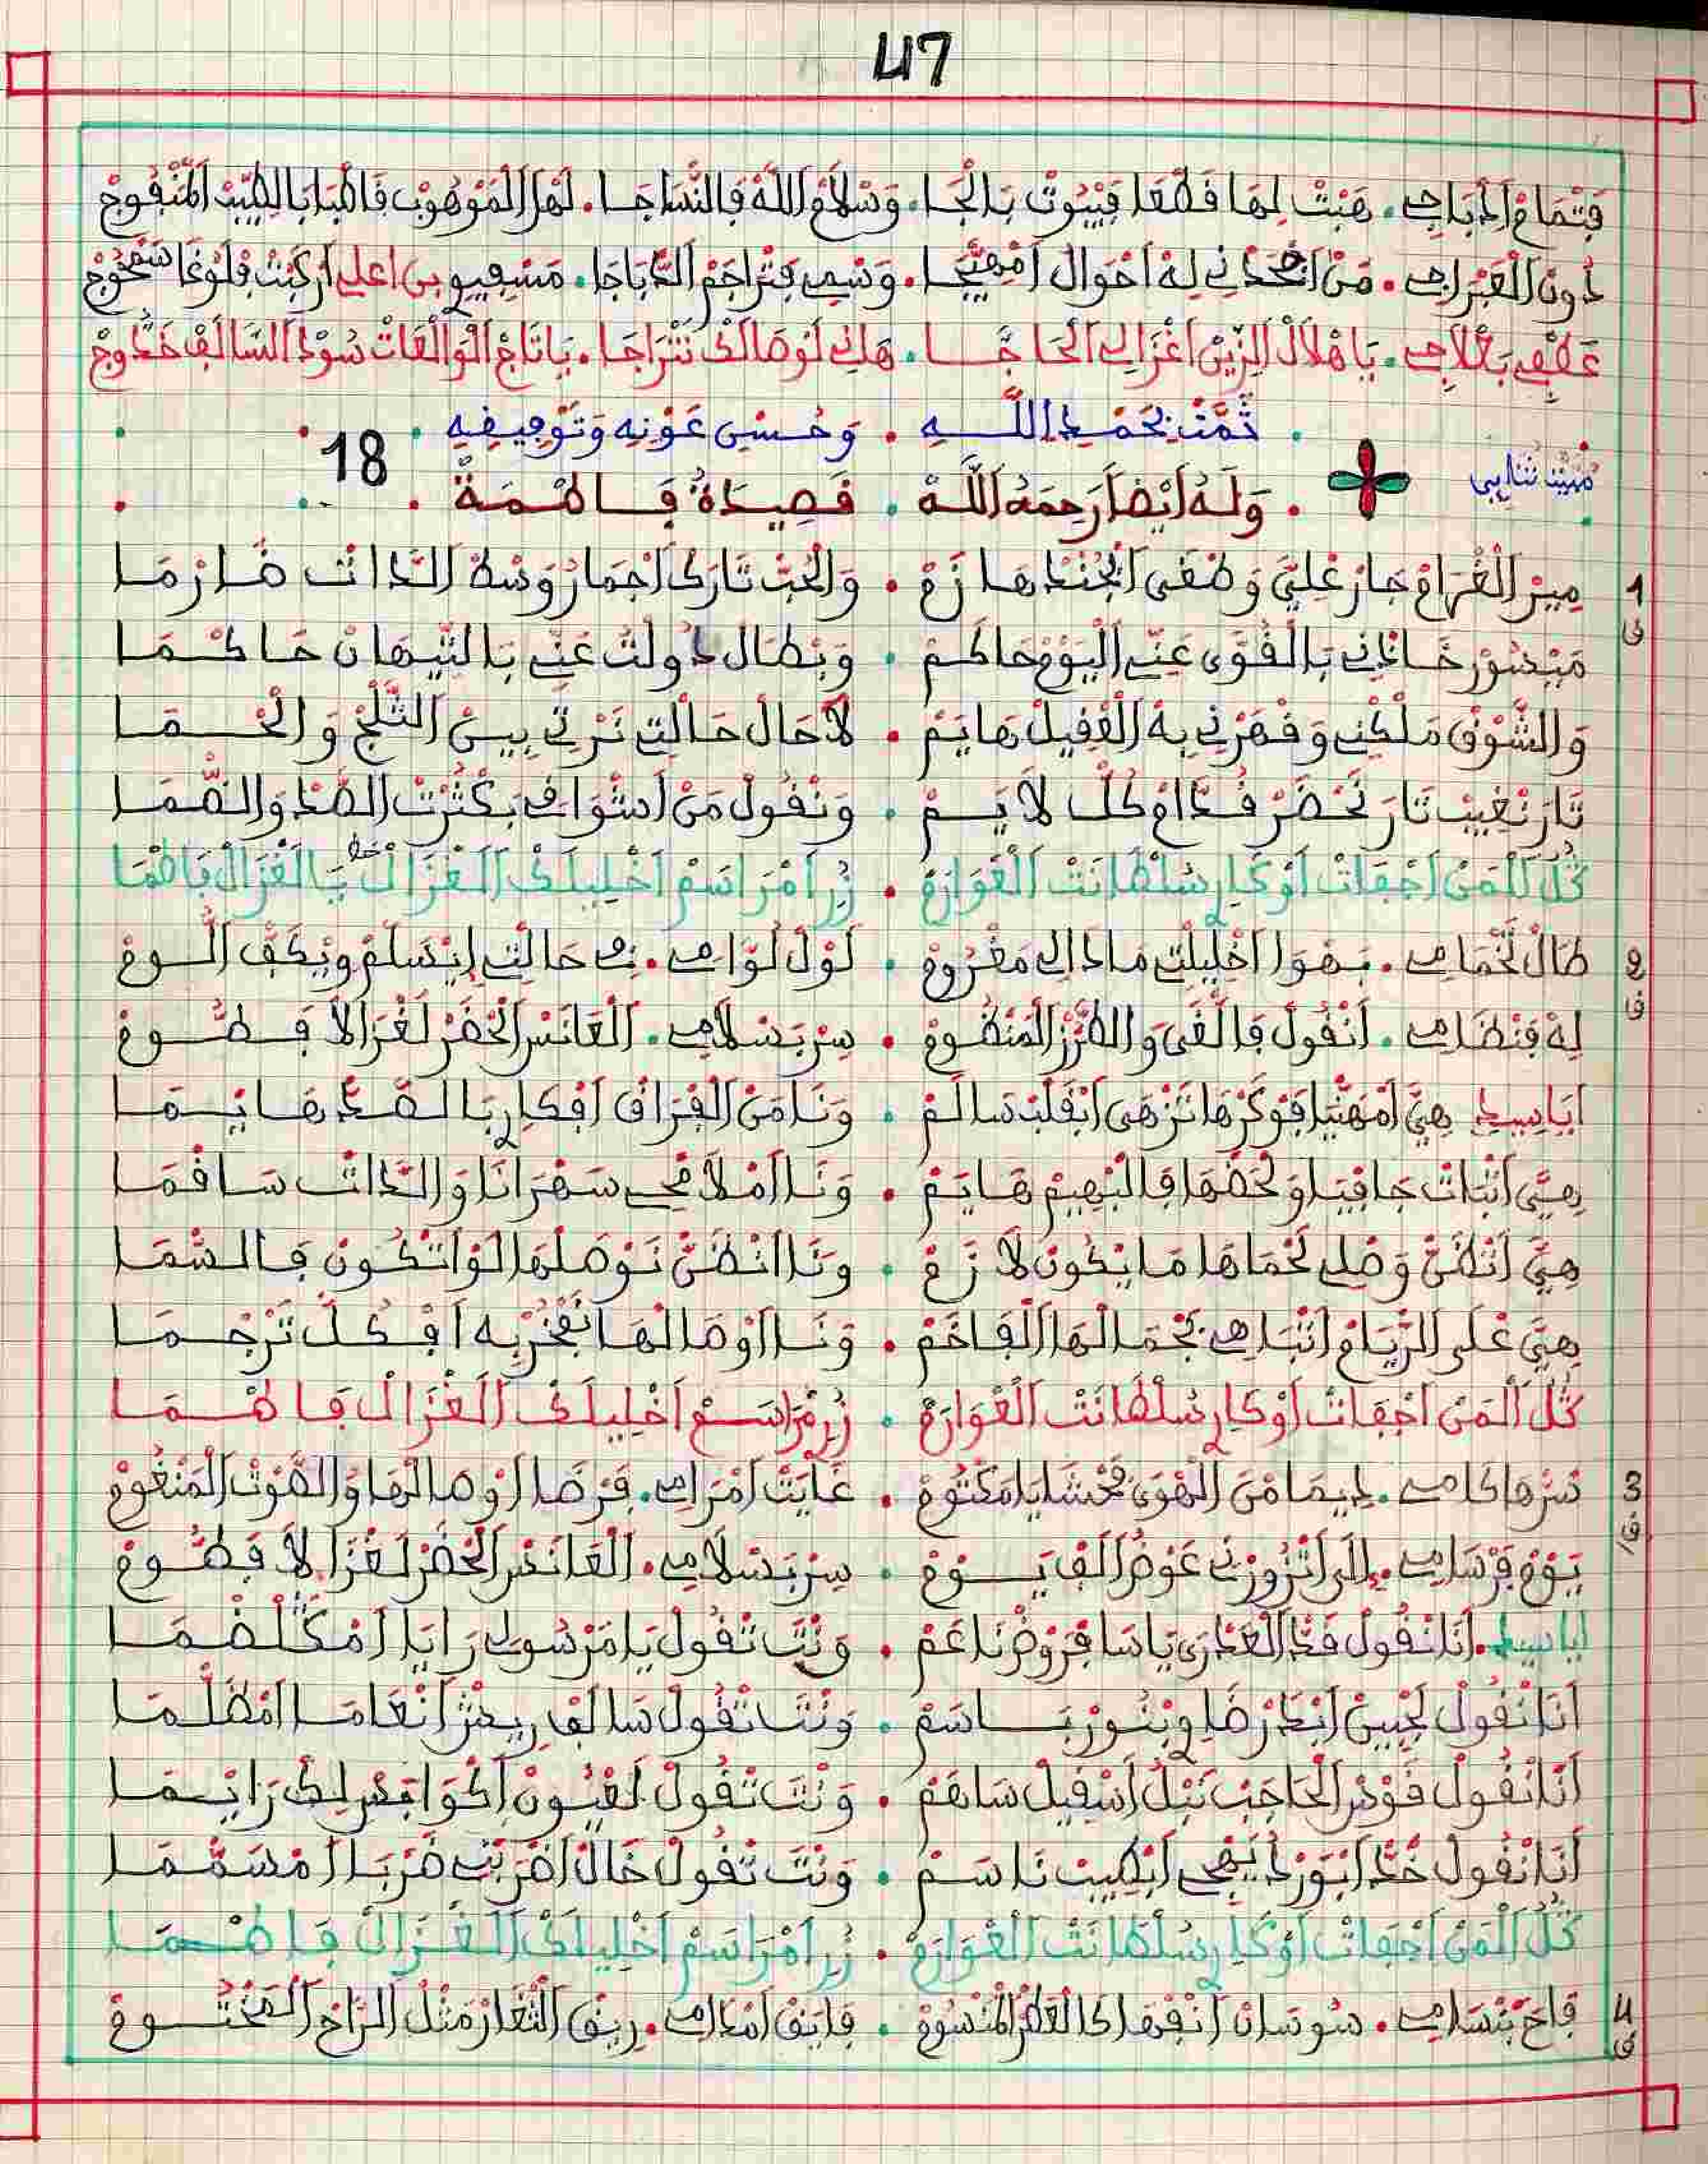 47
فتمام ادباجي. هبت لها فطعا فبيوت بالجا. وسلام الله فالنساجا. لهل الموهوب فاطبابا بالطيب المنفوج
دون الغبراجي. من اخدني له احوال امهيجا. وسمي فتراجم الدباجا. مسفيو بن اعلي اركبت فلوغا
عطفي بعلاجي. يا هلال الزين اغزالي الحاجا. هاني لوصالك نتراجا. يا تاج الوالعات سود السالف خدوج
تمت بحمد الله . وحسن عونه وتوفيفه
مبيت تنايي
وله أيضا رحمه الله . فصيدة فاطمة 18
1 ميز الغرام جار علي وطغى ابجند هازم . والحب تارك اجمار وسط الذات ضارما
ف ميسور خانني بالفوى عني اليوم حاكم . وبطال دولت عني بالتيهان حاكما
والشوف ملكني وفهرني به الغفيل هايم . لا حال حالتي نرتي بين الثلج والحما
تار نغيب تار نحضر فدام كل لايم . ونفول من ادواف بكثرت الصد والضما
كل المن اجفات اوكار سلطانت الغوارم . زر امراسم اخليلك الغزال يا الغزال باطما
2 طال تخمامي. بهوا اخليلتي مادا لي مغروم . لول لوامي. في حالتي ايسلم ويكف اللوم
ف له فنظامي. انفول فالغى والطرز المنظوم . سر بسلامي. العانس الخضر لغزالا فطوم
اياسيد هي امهنيا فوكرها تزهى ابفلب سالم . ونا من الفراف افكار بالصد هايما
هي اتبات جافيا ولحضها فالبهيم هايم . ونا املامحي سهرانا والذات سافما
هي اتظن وصلي لحماها ما يكون لازم . ونا انظن نوصلها لو اتكون فالسما
هي على الريام اتباهي بجمالها الفاخم . ونا اوصالها نفخر به افكل ترجما
كل المن اجفات اوكار سلطانت الغوارم . زر مراسم اخليلك الغزال فاطما
3 سرها كامي. ديما من الهوى فحشايا مكتوم . غايت امرامي. فرضا اوصالها والصوت المنغوم
ف يوم فرسامي. الى اتزورني عوض الف يوم . سر بسلامي. العانس الخضر لغزالا فطوم
اياسيد. أنا نفول فد العدرى يا سافر وض ناعم . ونت تفول يا مرسولي رايا امكلضما
أنا نفول لجبين ابدر ضاوي بنور باسم . ونت تفول سالف ريش انعاما امظلما
أنا نفول فوس الحاجب نبل اسفيل ساهم . ونت تفول لعيون اكوابس لك رايما
أنا نفول خد ابورد يفجي ابطيب ناسم . ونت تفول خال اضربت ضربا امسمما
كل المن اجفات اوكار سلطانت الغوارم . زر امراسم اخليلك الغزال فاطما
4 فاح بنسامي. سوسان انفها كالعطر المنسوم . فايق امدامي. ريف الثغار مثل الراح المختوم
ف